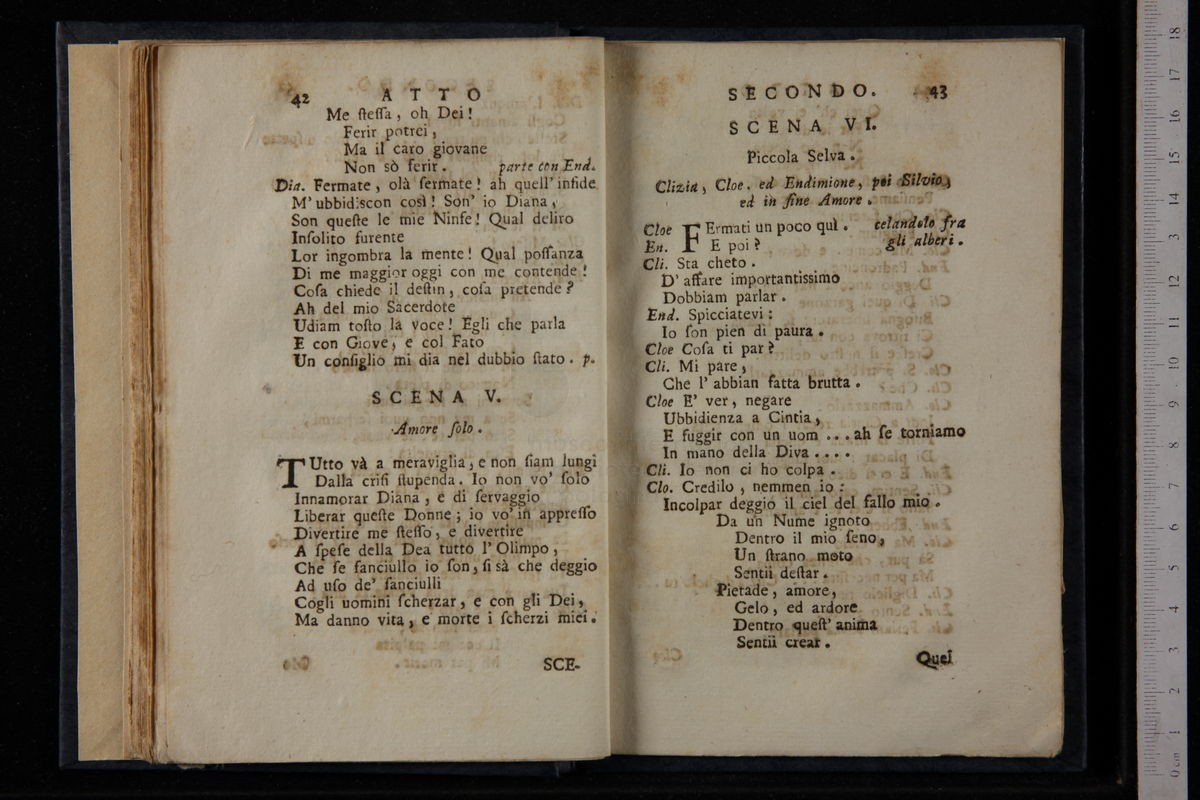 42 ATTO
Me ſteſſa, oh Dei!
Ferir potrei,
Ma il caro giovane
Non sò ferir. parte con End.
Dia. Fermate, olà fermate! ah quell' infide
M' ubbidiscon così! Son' io Diana,
Son queſte le mie Ninfe! Qual deliro
Inſolito furente
Lor ingombra la mente! Qual poſſanza
Di me maggior oggi con me contende!
Coſa chiede il deſtin, coſa pretende?
Ah del mio Sacerdote
Udiam toſto la voce! Egli che parla
E con Giove, e col Fato
Un conſiglio mi dia nel dubbio ſtato. p.
SCENA V.
Amore ſolo.
TUtto và a meraviglia, e non ſiam lungi
Dalla criſi ſtupenda. Io non vo' ſolo
Innamorar Diana, e di ſervaggio
Liberar queſte Donne; io vo' in appreſſo
Divertire me ſteſſo, e divertire
A ſpeſe della Dea tutto l' Olimpo,
Che ſe fanciullo io ſon, ſi sà che deggio
Ad uſo de' fanciulli
Cogli uomini ſcherzar, e con gli Dei,
Ma danno vita, e morte i ſcherzi miei.
SCE-
SECONDO. 43
SCENA VI.
Piccola Selva.
Clizia, Cloe, ed Endimione, poi Silvio,
ed in fine Amore.
Cloe FErmati un poco quì. celandolo fra
En. E poi? gli alberi.
Cli. Sta cheto.
D' affare importantissimo
Dobbiam parlar.
End. Spicciatevi:
Io ſon pien di paura.
Cloe Coſa ti par?
Cli. Mi pare,
Che l' abbian fatta brutta.
Cloe E' ver, negare
Ubbidienza a Cintia,
E fuggir con un uom ... ah ſe torniamo
In mano della Diva ....
Cli. Io non ci ho colpa.
Clo. Credilo, nemmen io:
Incolpar deggio il ciel del fallo mio.
Da un Nume ignoto
Dentro il mio ſeno,
Un ſtrano moto
Sentii deſtar.
Pietade, amore,
Gelo, ed ardore
Dentro queſt' anima
Sentii crear.
Quel
0 cm 1 2 3 4 5 6 7 8 9 10 11 12 13 14 15 16 17 18